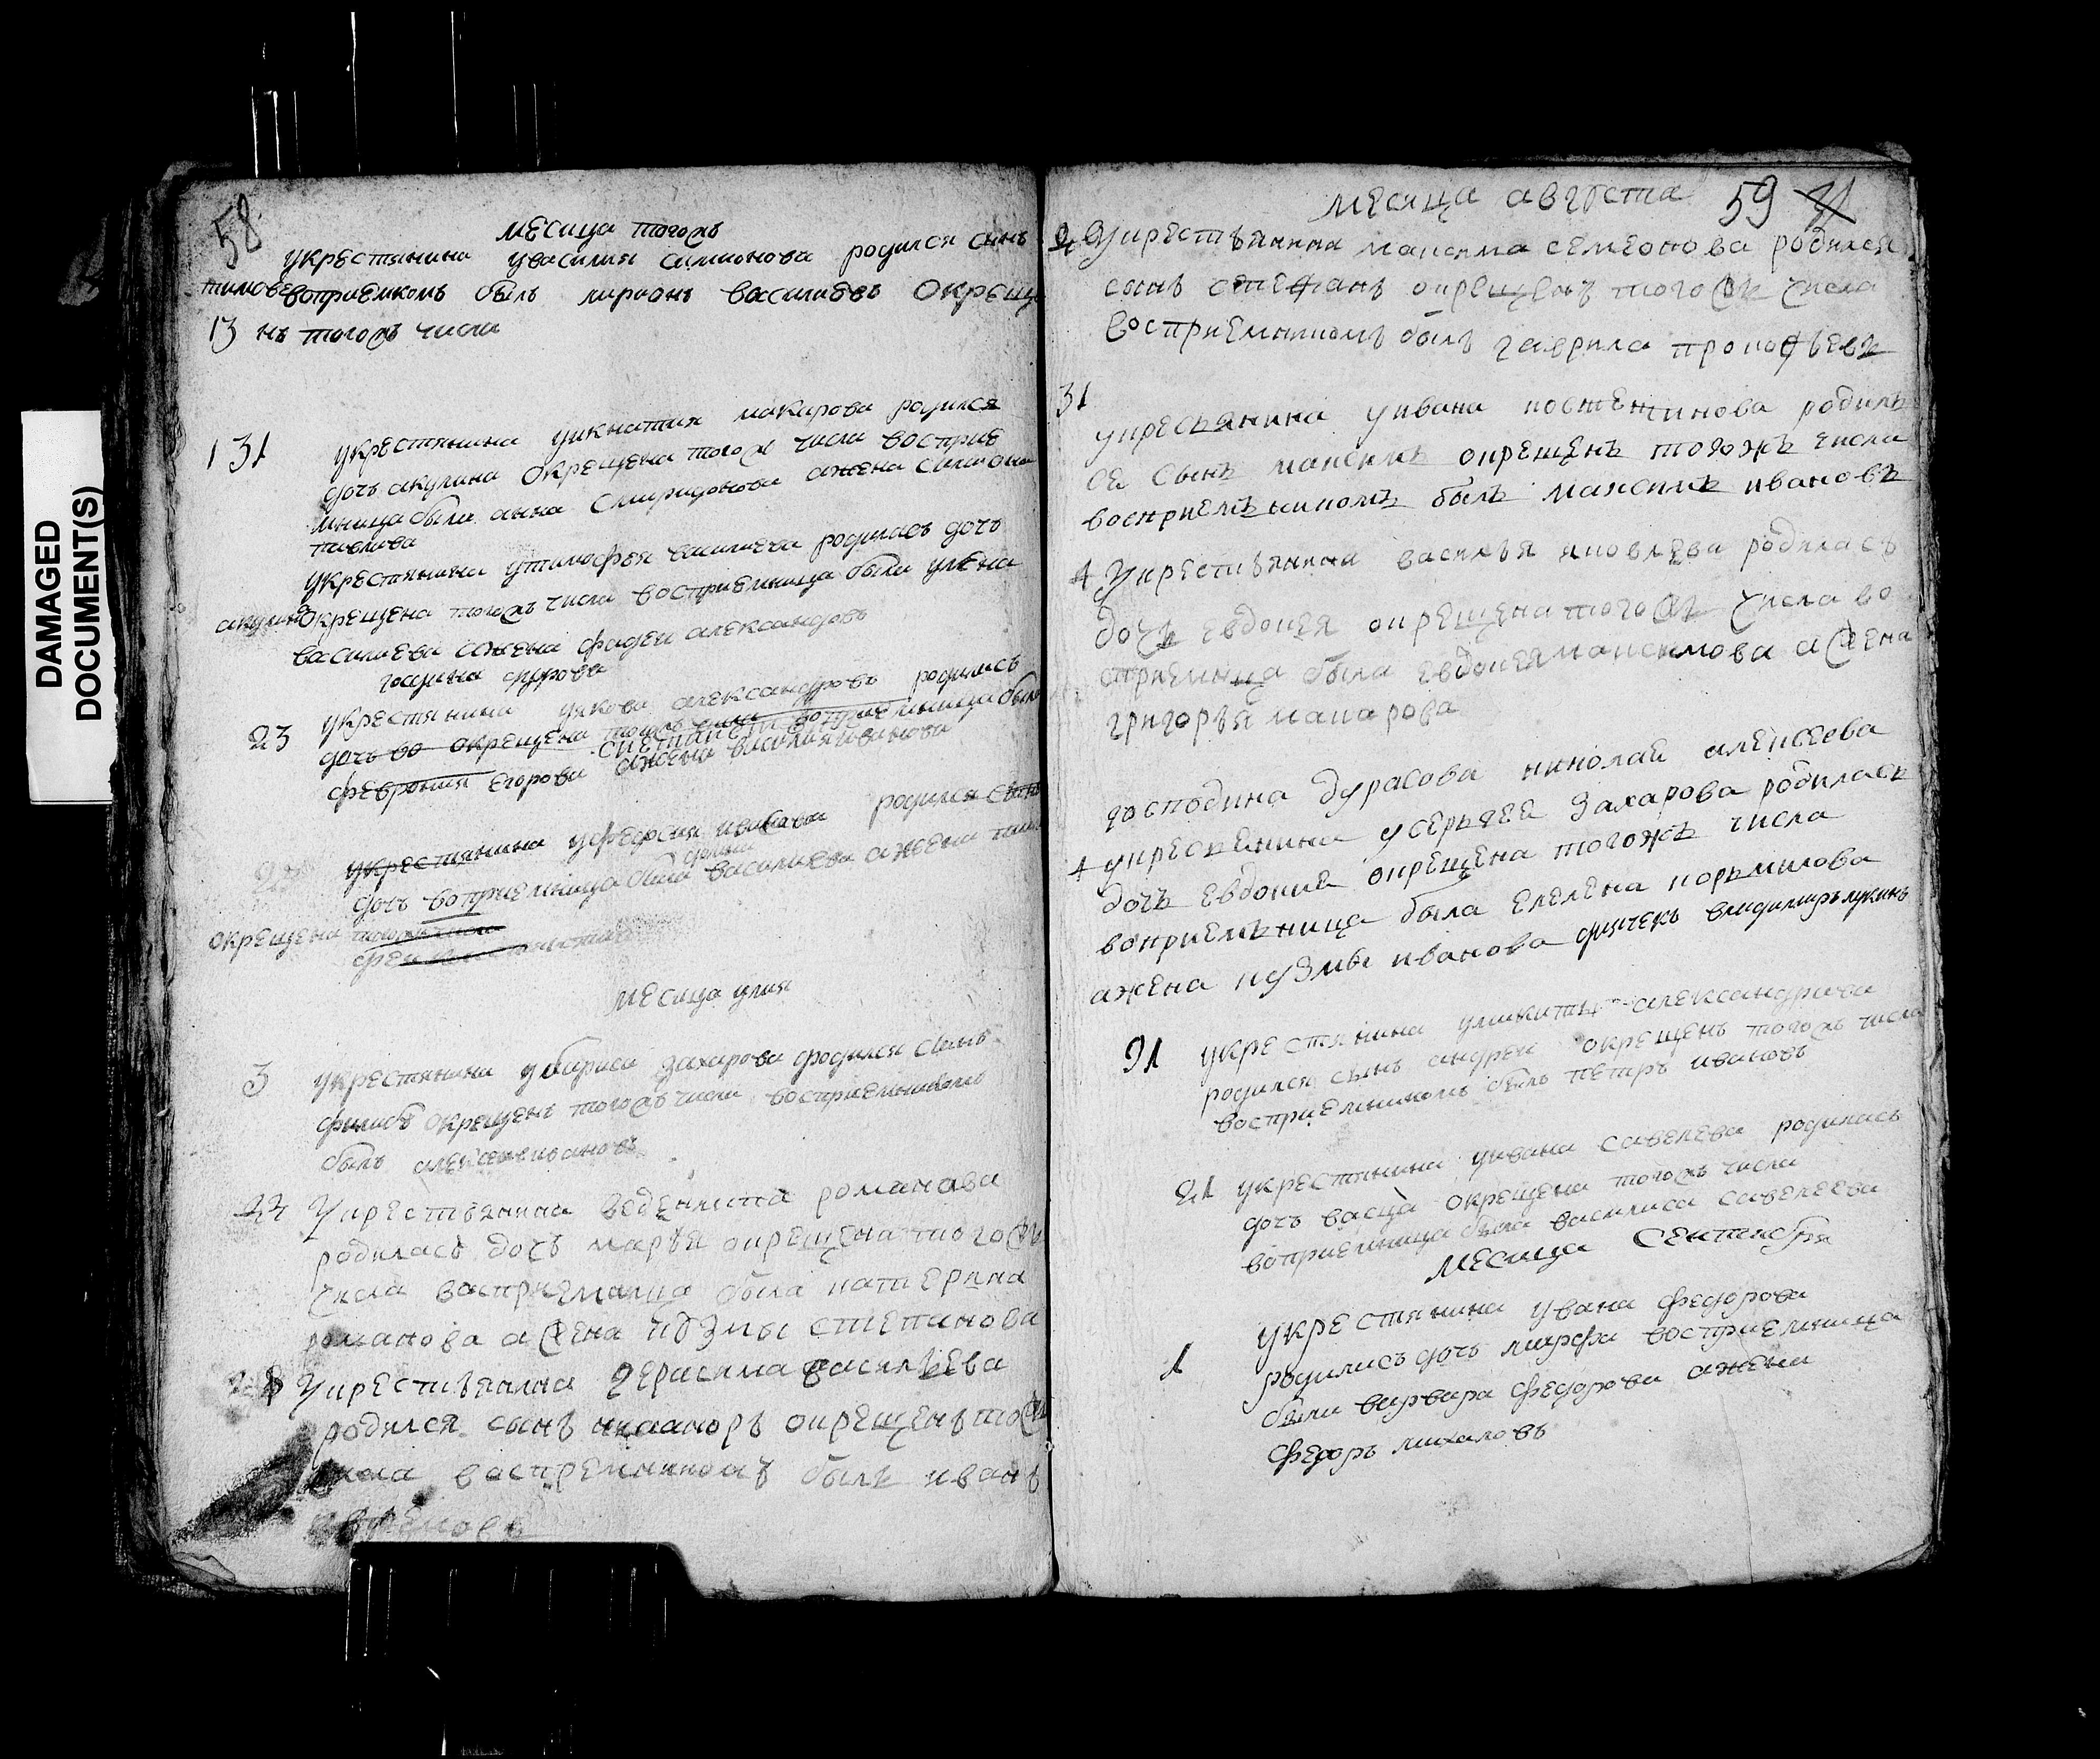 DAMAGED
DOCUMENT(S)
58
месица тогожъ
укрестянина увасилия симионова родился сынъ
тимофе воприемкомъ былъ лирионъ василиевъ окреще
13 нъ тогожъ числа
131 укрестянина уикнатия макарова родилса
дочъ акулина окрещена тогожъ числа восприе
мница была анна спиридонова ажена симиона
павлова
укрестянина утимофея василиева родиласъ дочъ
акулина окрещена тогожъ числа восприемница была улена
василиева ажена фадеи александовъ
23 укрестянина уякова александровъ родиласъ
дочъ во окрещена тогожъ числа воприемница была
феврония егорова ажена василия иванова
укрестянина уфедосия иванова родилса сынъ
дочъ воприемница была василиева ажена
окрещена тогожъ числа
месица улия
3 укрестянина убариса захарова родился сынъ
филипъ окрещенъ тогожъ числа восприемникомъ
былъ алексеи ивановъ
22 Укрестьянина веденикта романава
родиласъ дочъ марья окрещена тогожъ
числа васприемница была катерина
романова ажена кузмы степанова
Укрестьянина герасима васильева
родился сынъ никаноръ окрещенъ тогожъ
числа васпремникомъ былъ иванъ
59
месяца августа
2 Укрестьянина максима семеонова родился
сынъ стефанъ окрещенъ тогожъ числа
восприемникомъ былъ гаврила прокофьевъ
31
укресьянина уивана костентинова родилъ
са сынъ максимъ окрещенъ тогожъ числа
восприемъникомъ былъ максимъ ивановъ
4 Укрестьянина василья яковлева родиласъ
дочь евдокея окрещена тогожъ числа во
стриемница была евдокея максимова ажена
григорья макарова
господина дурасова николаи алексеева
4 укресьянина усеръгея захарова родиласъ
дочъ евдокиа окрещена тогожъ числа
воприемъница была елелена коръмилова
ажена кузмы иванова дячекъ владимиръ лукинъ
21 укрестянина уникиты александрава
родился сынъ андреи окрещенъ тогожъ числа
восприемникомъ былъ петаръ ивановъ
21 укрестянина уивана савелева родиласъ
дочъ васца окрещена тогожъ числа
воприемница была василиса савелеева
месица сентября
1 укрестянина увана федорова
родиласъ дочъ марфа восприемница
была варвара федорова ажена
федоръ михаловъ